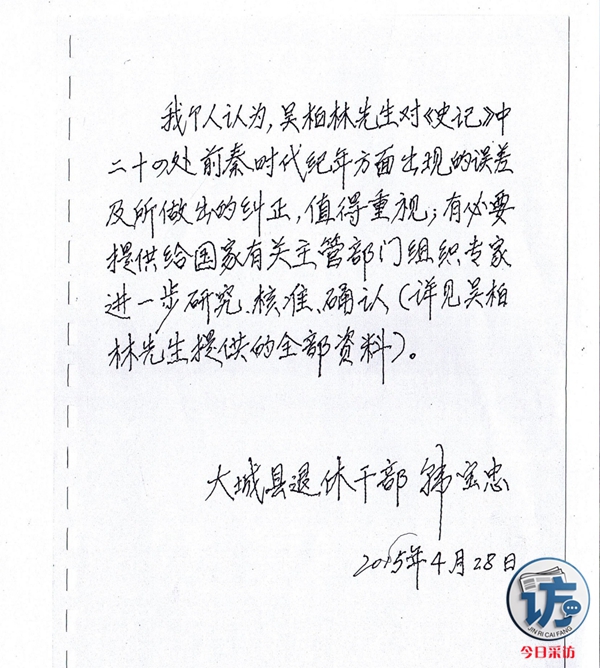 我个人认为，吴柏林先生对《史记》中
二十四处前秦时代纪年方面出现的误差
及所做出的纠正，值得重视；有必要
提供给国家有关主管部门组织专家
进一步研究、核准、确认（详见吴柏
林先生提供的全部资料）。
大城县退休干部 韩宝忠
2015年4月28日
访
JIN RI CAI FANG
今日采访